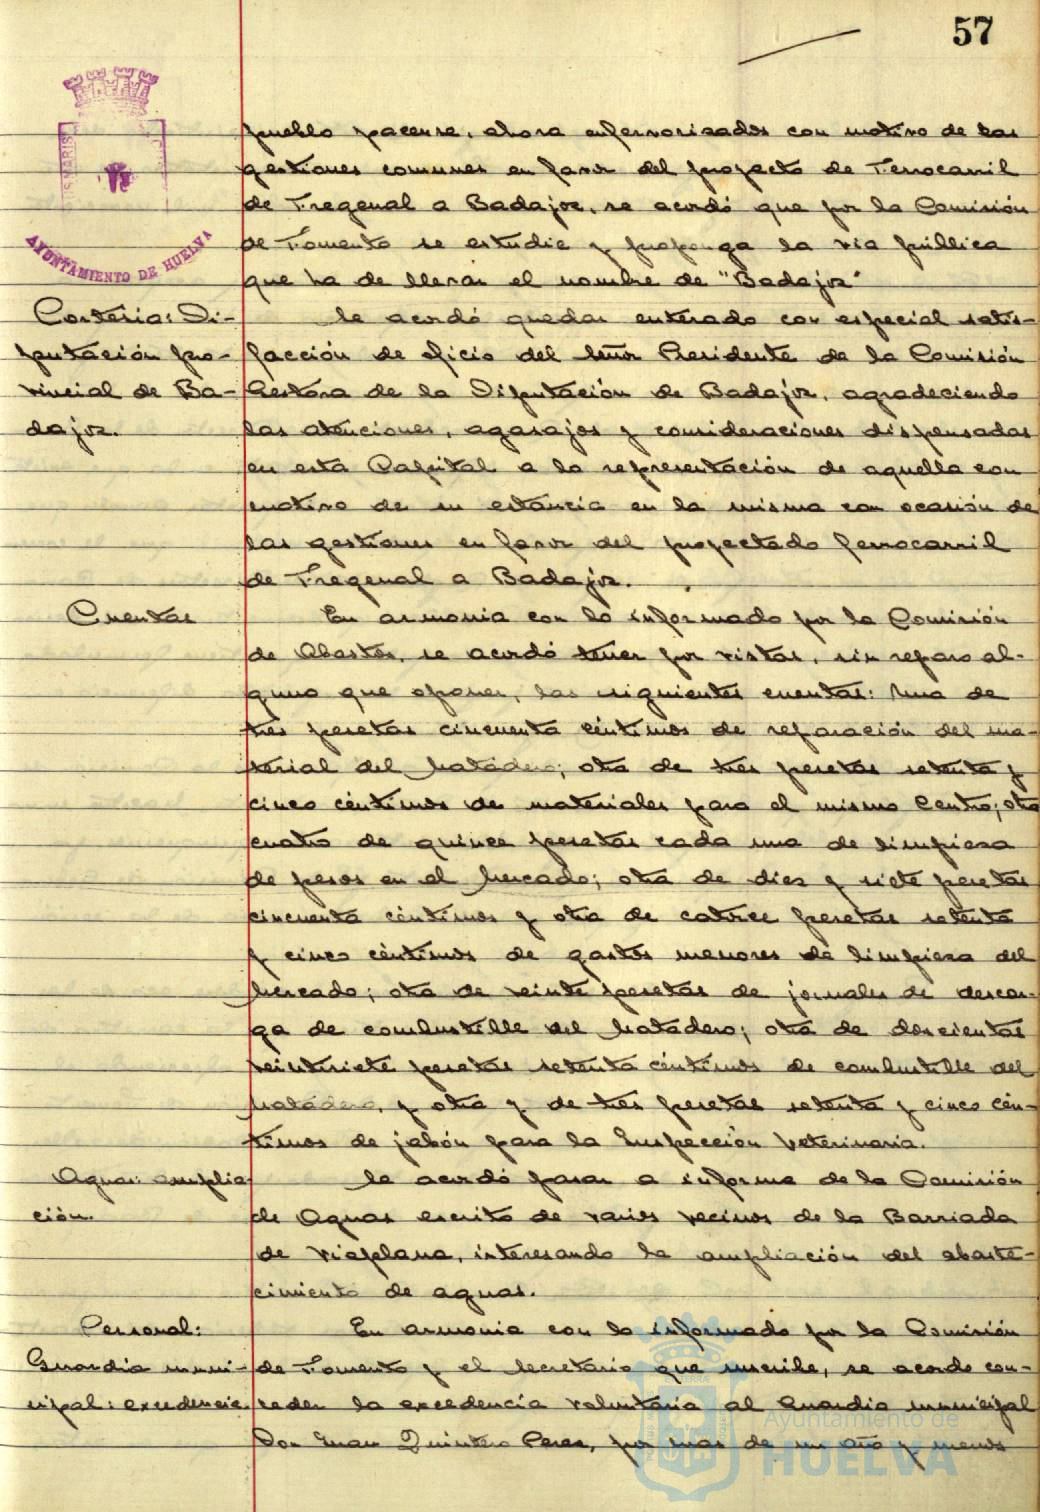 57
AYUNTAMIENTO DE HUELVA
pueblo pacense, ahora enfervorizados con motivo de las
gestiones comunes en favor del proyecto de Ferrocarril
de Fregenal a Badajoz, se acordó que por la Comisión
de Fomento se estudie y proponga la vía pública
que ha de llevar el nombre de "Badajoz"
Cortesía: Di-
putación pro-
vincial de Ba-
dajoz.
Se acordó quedar enterado con especial satis-
facción de oficio del Señor Presidente de la Comisión
Gestora de la Diputación de Badajoz, agradeciendo
las atenciones, agasajos y consideraciones dispensadas
en esta Capital a la representación de aquella con
motivo de su estancia en la misma con ocasión de
las gestiones en favor del proyectado ferrocarril
de Fregenal a Badajoz.
Cuentas
En armonia con lo informado por la Comisión
de Abastos, se acordó tener por vistas, sin reparo al-
guno que oponer, las siguientes cuentas: Una de
tres pesetas cincuenta céntimos de reparación del ma-
terial del Matadero; otra de tres pesetas setenta y
cinco céntimos de materiales para el mismo Centro; otra
cuatro de quince pesetas cada una de limpieza
de pesos en el Mercado; otra de diez y siete pesetas
cincuenta céntimos y otra de catorce pesetas setenta
y cinco céntimos de gastos menores de limpieza del
Mercado; otra de veinte pesetas de jornales de descar-
ga de combustible del Matadero; otra de doscientas
veintisiete pesetas setenta céntimos de combustible del
Matadero, y otra y de tres pesetas setenta y cinco cén-
timos de jabón para la Inspección Veterinaria.
Aguas: amplia
ción.
Se acordó pasar a informe de la Comisión
de Aguas escrito de varios vecinos de la Barriada
de Viaplana, interesando la ampliación del abaste-
cimiento de aguas.
Personal:
Guardia muni-
cipal: excedencia.
En armonia con lo informado por la Comisión
de Fomento y el Secretario que suscribe, se acordo con-
ceder la excedencia voluntaria al Guardia municipal
Don Juan Quintero Perez, por mas de un año y menos
Ayuntamiento de
HUELVA